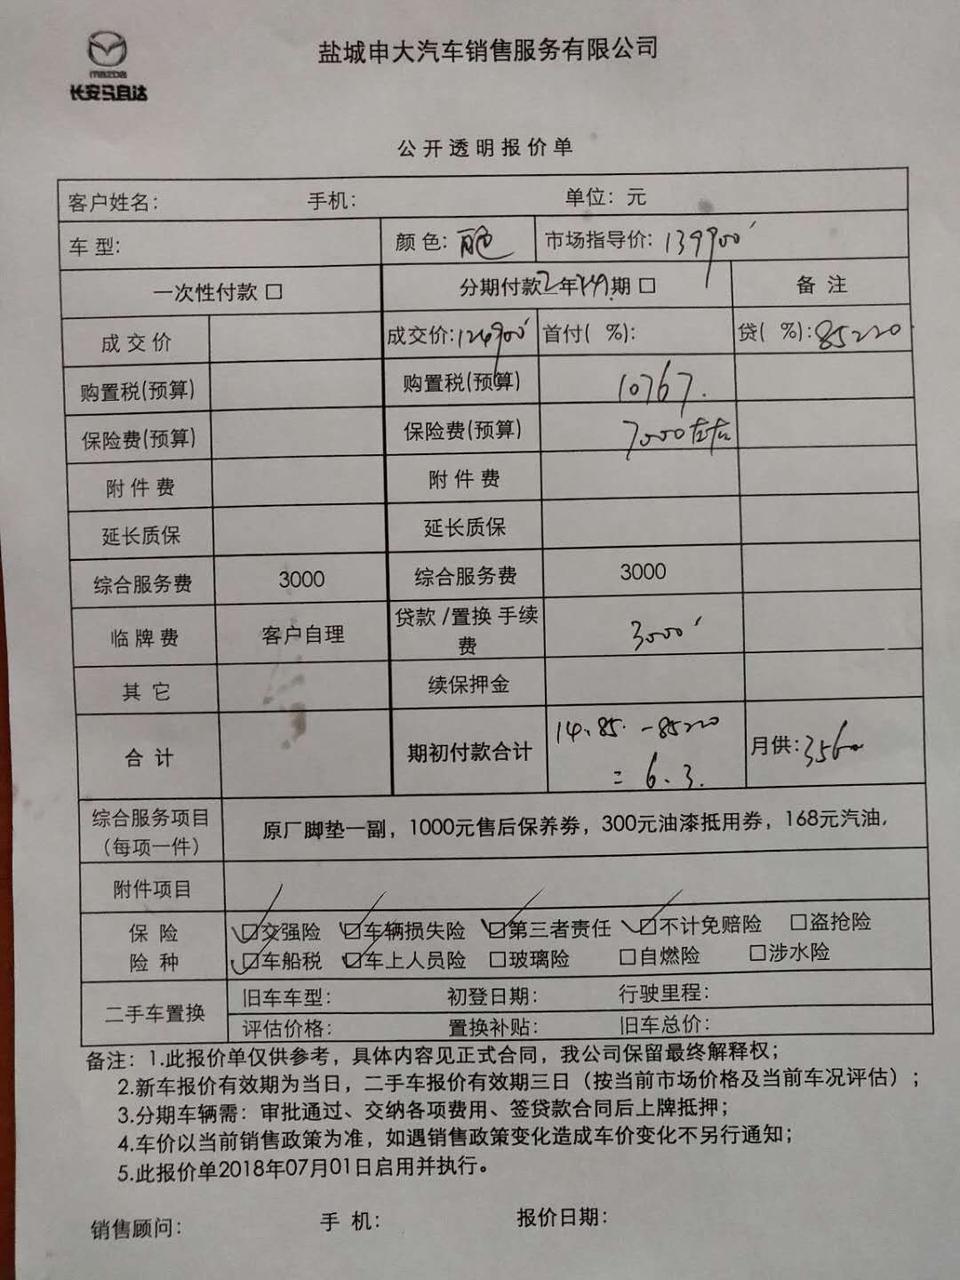 mazda
长安马自达
盐城申大汽车销售服务有限公司
公开透明报价单
客户姓名: 手机: 单位: 元
车 型: 颜 色: 市场指导价: 139900
一次性付款 □ 分期付款2年 期 □ 备 注
成 交 价 成交价:124900 首付( %): 贷( %):85220
购置税(预算) 购置税(预算) 10767.
保险费(预算) 保险费(预算) 7000左右
附 件 费 附 件 费
延长质保 延长质保
综合服务费 3000 综合服务费 3000
临 牌 费 客户自理 贷款 /置换 手续费 3000
其 它 续保押金
合 计 期初付款合计 14.85. -85220 = 6.3. 月供:3560
综合服务项目(每项一件) 原厂脚垫一副，1000元售后保养券，300元油漆抵用券，168元汽油,
附件项目
保 险 ☑交强险 ☑车辆损失险 ☑第三者责任 ☑不计免赔险 □盗抢险
险 种 ☑车船税 ☑车上人员险 □玻璃险 □自燃险 □涉水险
二手车置换 旧车车型: 初登日期: 行驶里程:
评估价格: 置换补贴: 旧车总价:
备注: 1.此报价单仅供参考，具体内容见正式合同，我公司保留最终解释权；
2.新车报价有效期为当日，二手车报价有效期三日（按当前市场价格及当前车况评估）；
3.分期车辆需：审批通过、交纳各项费用、签贷款合同后上牌抵押；
4.车价以当前销售政策为准，如遇销售政策变化造成车价变化不另行通知；
5.此报价单2018年07月01日启用并执行。
销售顾问: 手 机: 报价日期: